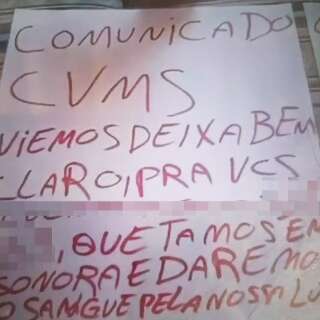 COMUNICADO
CVMS
VIEMOS DEIXA BEM
CLARO, PRA VCS
, QUE TAMOS EM
SONORA E DAREMO
O SANGUE PELA NOSSA LU